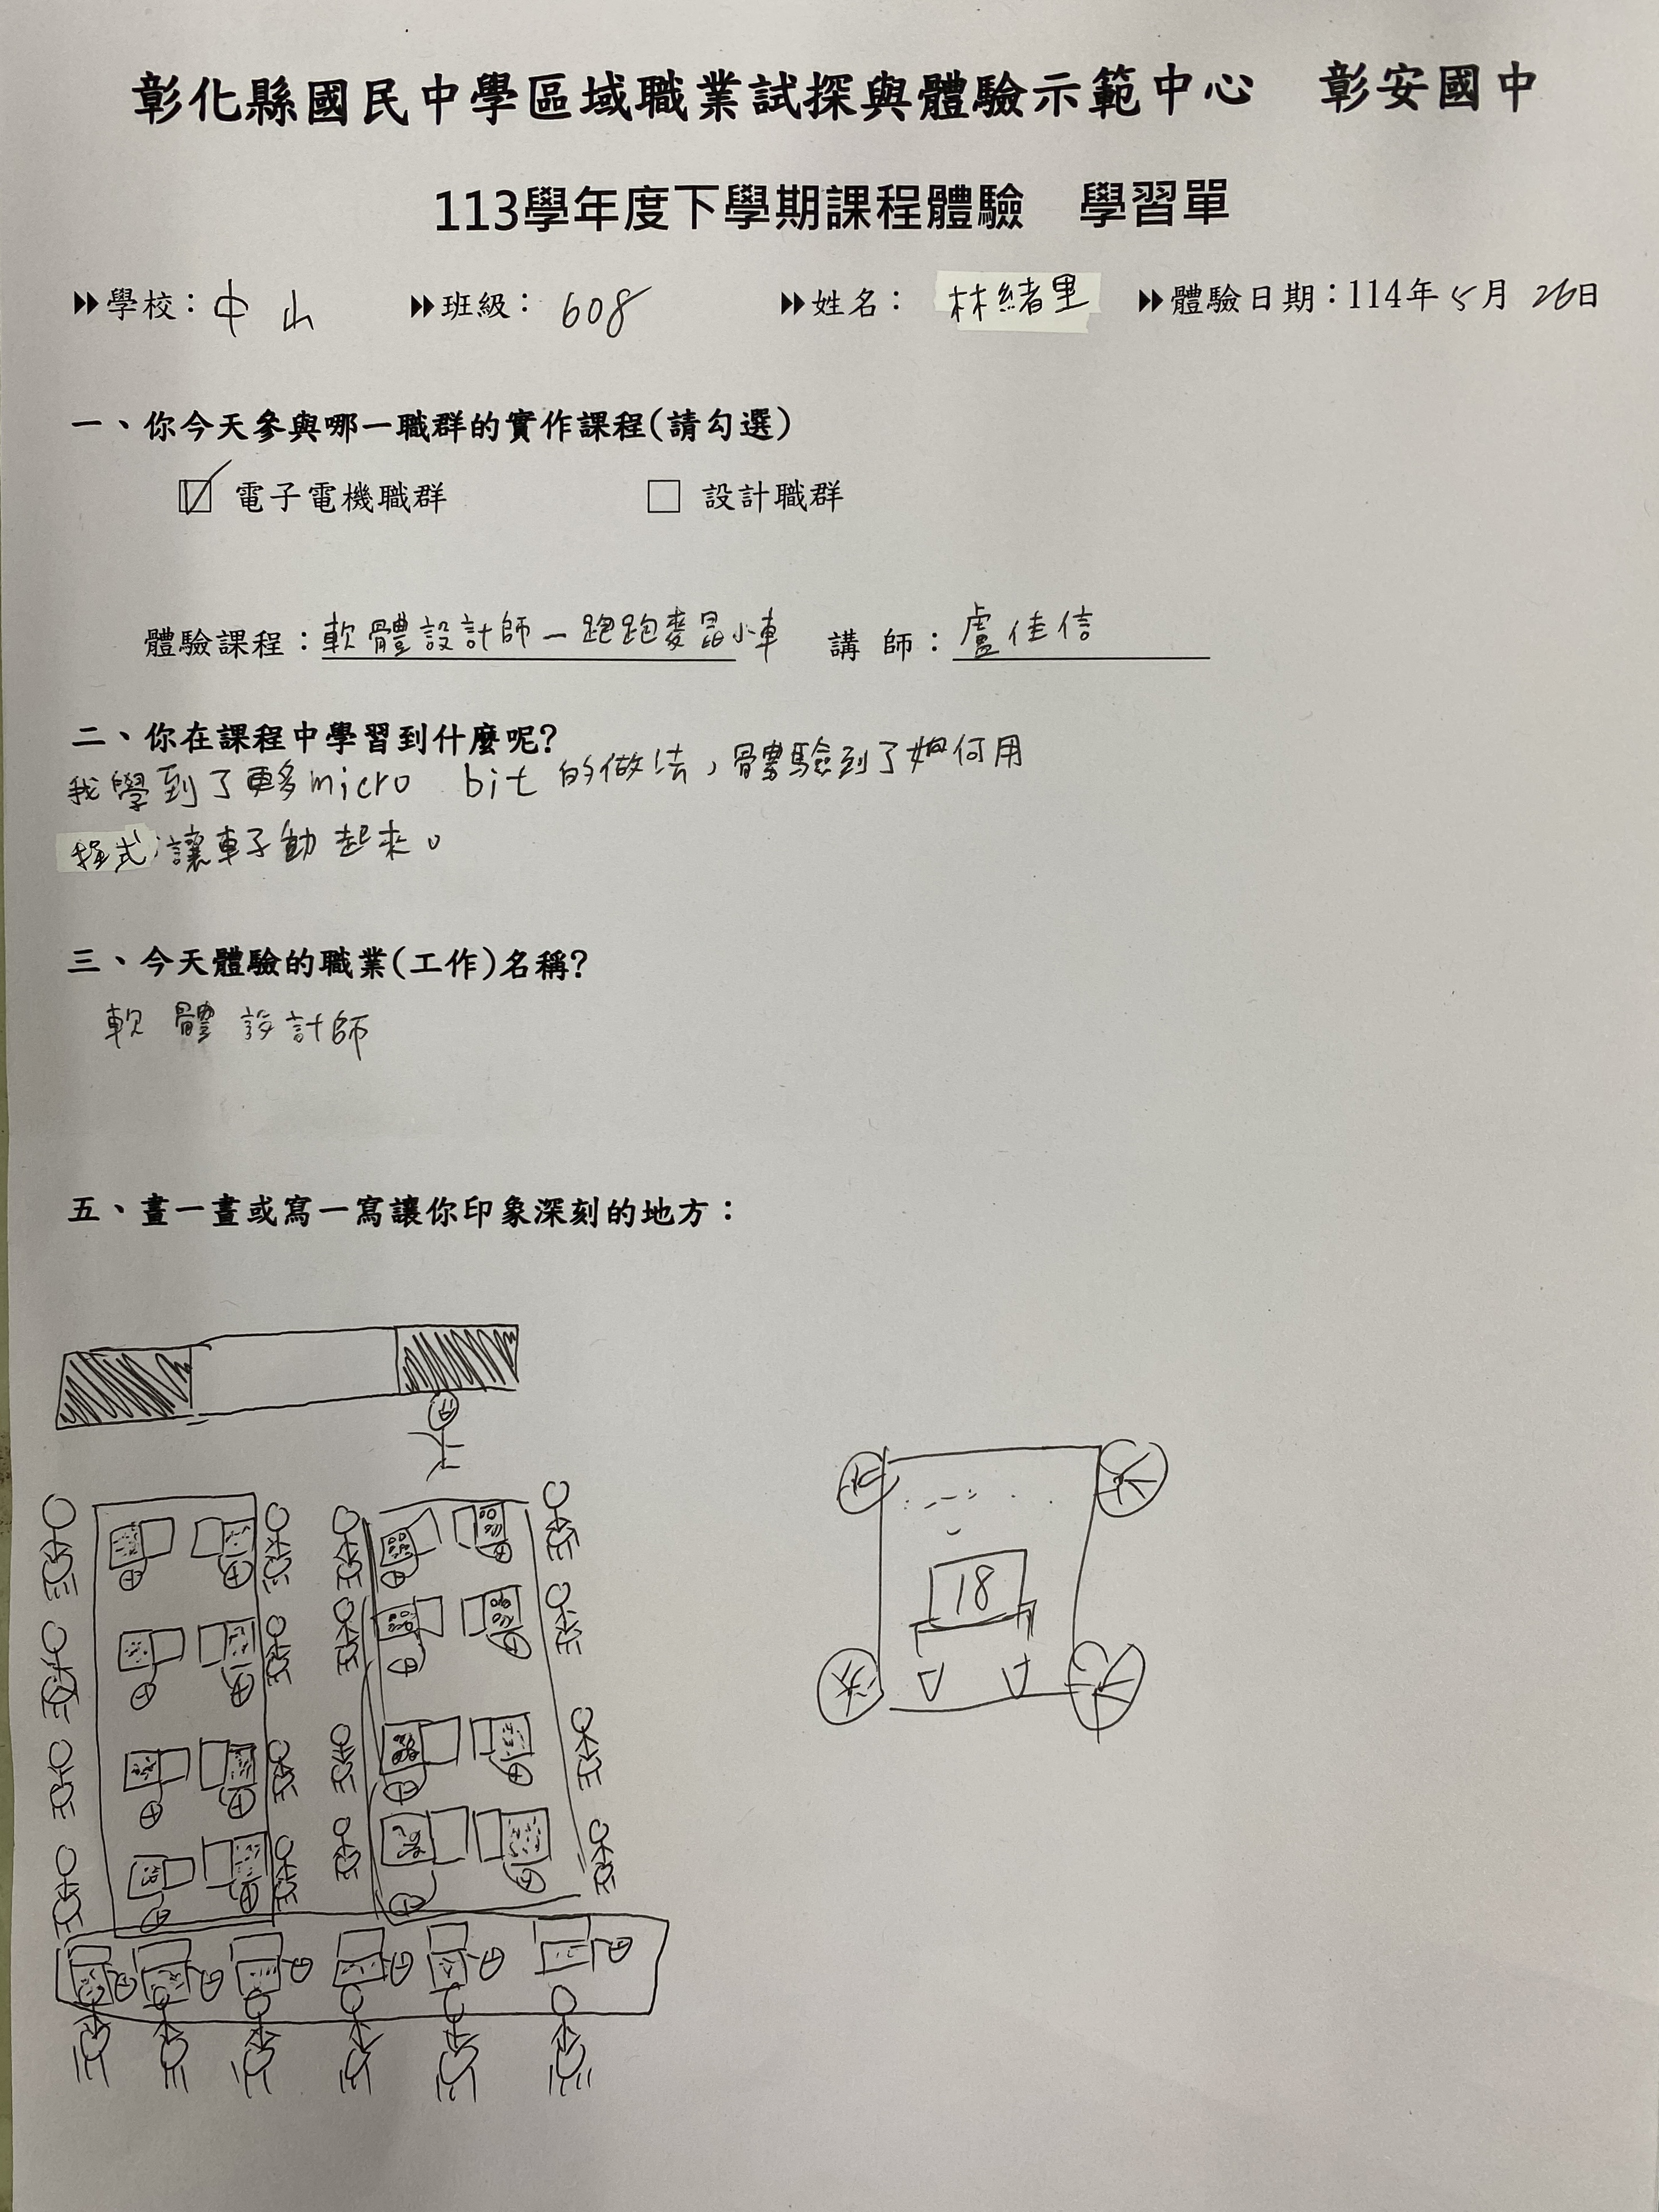 彰化縣國民中學區域職業試探與體驗示範中心 彰安國中
113學年度下學期課程體驗 學習單
學校：中山 班級：608 姓名：林緒里 體驗日期：114年5月26日
一、你今天參與哪一職群的實作課程(請勾選)
☑ 電子電機職群 □ 設計職群
體驗課程：軟體設計師－跑跑麥昆小車 講師：盧佳信
二、你在課程中學習到什麼呢?
我學到了更多micro bit的做法，體驗到了如何用
程式讓車子動起來。
三、今天體驗的職業(工作)名稱?
軟體設計師
五、畫一畫或寫一寫讓你印象深刻的地方：
18